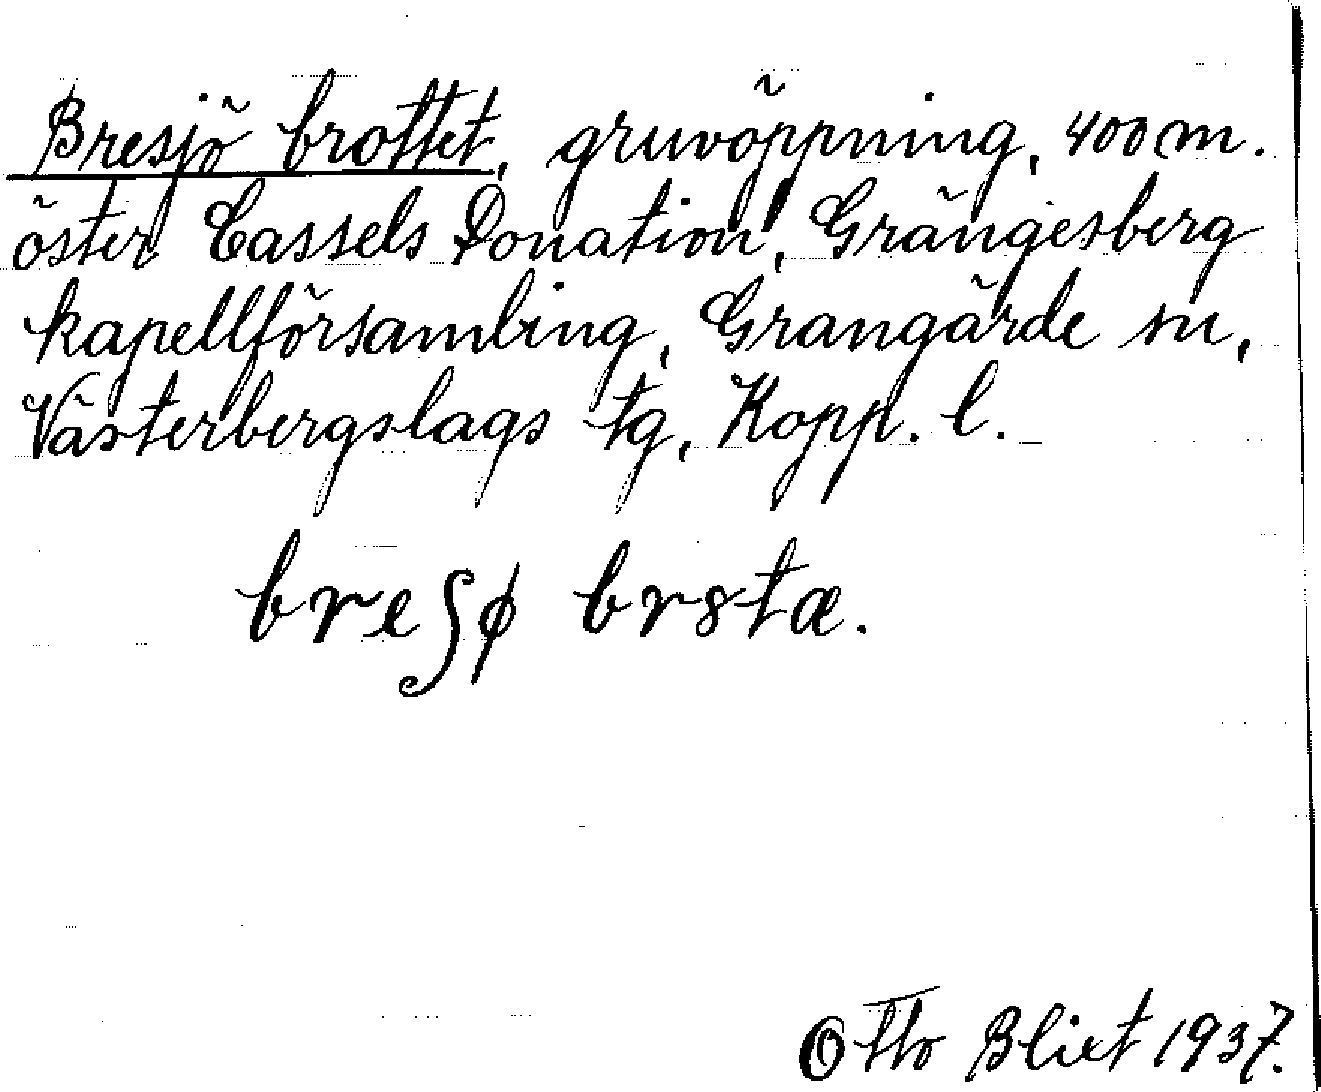 Bresjö brottet, gruvöppning, 400 m.
öster Cassels Donation, Grängesberg
kapellförsamling, Grangärde sn,
Västerbergslags tg, Kopp. l.
breʃø br8tæ.
Otto Blixt 1937.